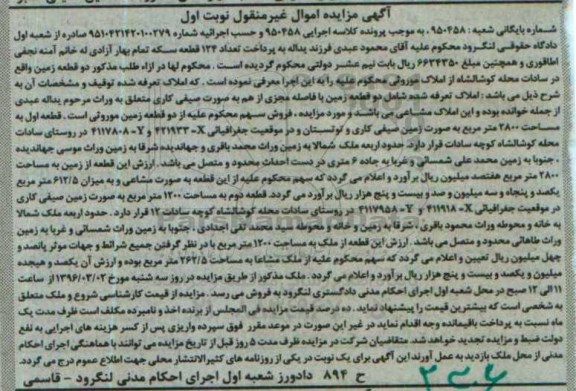 آگهی مزایده اموال غیرمنقول نوبت اول
شماره بایگانی شعبه : ۹۵۰۴۵۸، به موجب پرونده کلاسه اجرایی ۹۵۰۴۵۸ و حسب اجرائیه شماره ۹۵۱۰۴۲۱۴۲۰۱۰۰۲۷۹ صادره از شعبه اول
دادگاه حقوقی لنگرود محکوم علیه آقای محمود عبدی فرزند یداله به پرداخت تعداد ۱۲۴ قطعه سکه تمام بهار آزادی له خانم آمنه نجفی
اطاقوری و همچنین مبلغ ۶۶۲۴۳۵۰ ریال بابت نیم عشر دولتی محکوم گردیده است . محکوم لها در ازاء طلب مذکور دو قطعه زمین واقع
در سادات محله کوشالشاه از املاک موروثی محکوم علیه را به این اجرا معرفی نموده است . که املاک تعرفه شده، توقیف و مشخصات آن به
شرح ذیل می باشد : املاک تعرفه شده شامل دو قطعه زمین با فاصله مجزی از هم به صورت صیفی کاری متعلق به وراث مرحوم یداله عبدی
از جمله خوانده بوده و این املاک مشاعی می باشند و مورد مزایده ، فروش سهم محکوم علیه از دو قطعه زمین موروثی است . قطعه اول به
مساحت ۲۸۰۰ متر مربع به صورت زمین صیفی کاری و توتستان و در موقعیت جغرافیائی X-۴۲۱۹۳۳ و Y-۴۱۱۷۸۰۸ در روستای سادات
محله کوشالشاه کوچه سادات قرار دارد. حدود اربعه ملک شمالا به زمین وراث محمد باقری و جهاندیده شرقا به زمین وراث موسی جهاندیده
، جنوبا به زمین محمد علی شمسائی و غربا به جاده ۶ متری در دست احداث محدود و متصل می باشد . ارزش این قطعه از زمین به مساحت
۲۸۰۰ متر مربع هفتصد میلیون ریال برآورد و اعلام می گردد که سهم محکوم علیه از این قطعه به صورت مشاعی و به میزان ۶۱۲/۵ متر مربع
یکصد و پنجاه و سه میلیون و صد و بیست و پنج هزار ریال برآورد می گردد. قطعه دوم به مساحت ۱۲۰۰ متر مربع به صورت زمین صیفی کاری
در موقعیت جغرافیائی X-۴۱۱۹۱۸ و Y-۴۱۱۷۹۵۸ در روستای سادات محله کوشالشاه کوچه سادات ۱۲ قرار دارد . حدود اربعه ملک شمالا
به خانه و محوطه وراث محمود باقری ، شرقا به زمین و خانه و محوطه سید محمد تقی اجدادی ، جنوبا به زمین وراث شمسائی و غربا به زمین
وراث طاهائی محدود و متصل می باشد . ارزش این قطعه از ملک به مساحت ۱۲۰۰ متر مربع با در نظر گرفتن جمیع شرائط و جهات موثر پانصد و
چهل میلیون ریال تعیین و اعلام می گردد که سهم محکوم علیه از ملک مشاعا به مساحت ۲۶۲/۵ متر مربع بوده و ارزش آن یکصد و هیجده
میلیون و یکصد و بیست و پنج هزار ریال برآورد و اعلام می گردد . ملک مذکور از طریق مزایده در روز سه شنبه مورخ ۱۳۹۶/۰۳/۰۲ از ساعت
۱۱ الی ۱۲ صبح در محل شعبه اول اجرای احکام مدنی دادگستری لنگرود به فروش می رسد . مزایده از قیمت کارشناسی شروع و ملک متعلق
به شخصی است که بیشترین قیمت را پیشنهاد نماید . ده درصد قیمت مزایده فی المجلس از برنده اخذ و نامبرده مکلف است ظرف مدت یک
ماه نسبت به پرداخت باقیمانده وجه اقدام نماید در غیر این صورت در موعد مقرر فوق سپرده واریزی پس از کسر هزینه های اجرایی به نفع
دولت ضبط و مزایده تجدید خواهد شد. متقاضیان شرکت در مزایده ظرف مدت ۵ روز قبل از تاریخ مزایده می توانند با هماهنگی اجرای احکام
مدنی از محل ملک بازدید به عمل آورند این آگهی برای یک نوبت در یکی از روزنامه های کثیرالانتشار محلی جهت اطلاع عموم درج می گردد.
ح ۸۹۴ دادورز شعبه اول اجرای احکام مدنی لنگرود - قاسمی